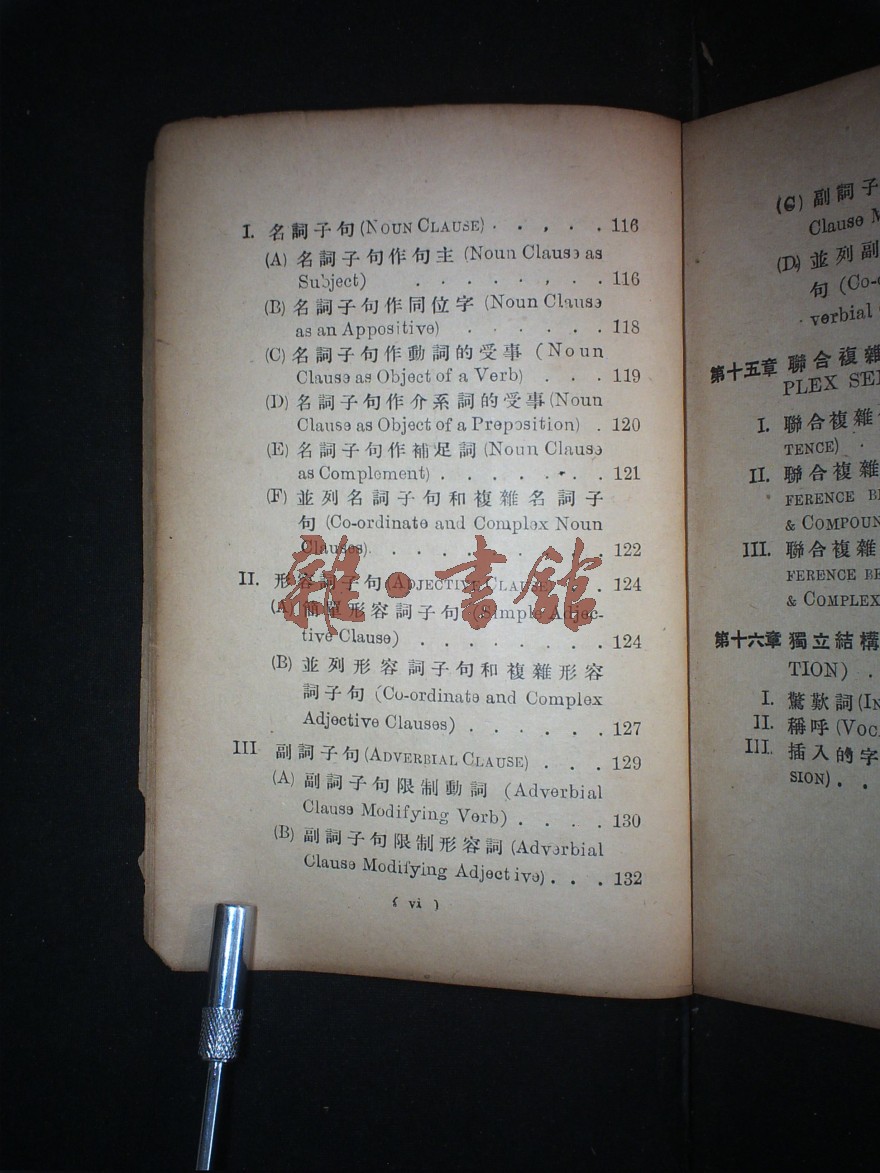 I. 名詞子句(NOUN CLAUSE) . . , . . 116
(A) 名詞子句作句主 (Noun Clause as
Subject) . . . . . , . . 116
(B) 名詞子句作同位字 (Noun Clause
as an Appositive) . . . . . . 118
(C) 名詞子句作動詞的受事 (Noun
Clause as Object of a Verb) . . . 119
(D) 名詞子句作介系詞的受事(Noun
Clause as Object of a Preposition) . 120
(E) 名詞子句作補足詞 (Noun Clause
as Complement) . . . . . . . 121
(F) 並列名詞子句和複雜名詞子
句 (Co-ordinate and Complex Noun
Clauses). . . . . . . . . 122
II. 形容詞子句(ADJECTIVE CLAUSE) . . 124
(A) 簡單形容詞子句 (Simple Adjec-
tive Clause) . . . . . . . . 124
(B) 並列形容詞子句和複雜形容
詞子句 (Co-ordinate and Complex
Adjective Clauses) . . . . . . 127
III 副詞子句(ADVERBIAL CLAUSE) . . . 129
(A) 副詞子句限制動詞 (Adverbial
Clause Modifying Verb) . . . . . 130
(B) 副詞子句限制形容詞 (Adverbial
Clause Modifying Adjective) . . . 132
( vi )
雜·書館
(C) 副詞子
Clause M
(D) 並列副
句 (Co-
verbial
第十五章 聯合複雜
PLEX SE
I. 聯合複雜
TENCE) .
II. 聯合複雜
FERENCE B
& COMPOUN
III. 聯合複雜
FERENCE BE
& COMPLEX
第十六章 獨立結構
TION) .
I. 驚歎詞(IN
II. 稱呼 (VOCA
III. 插入的字
SION) . .